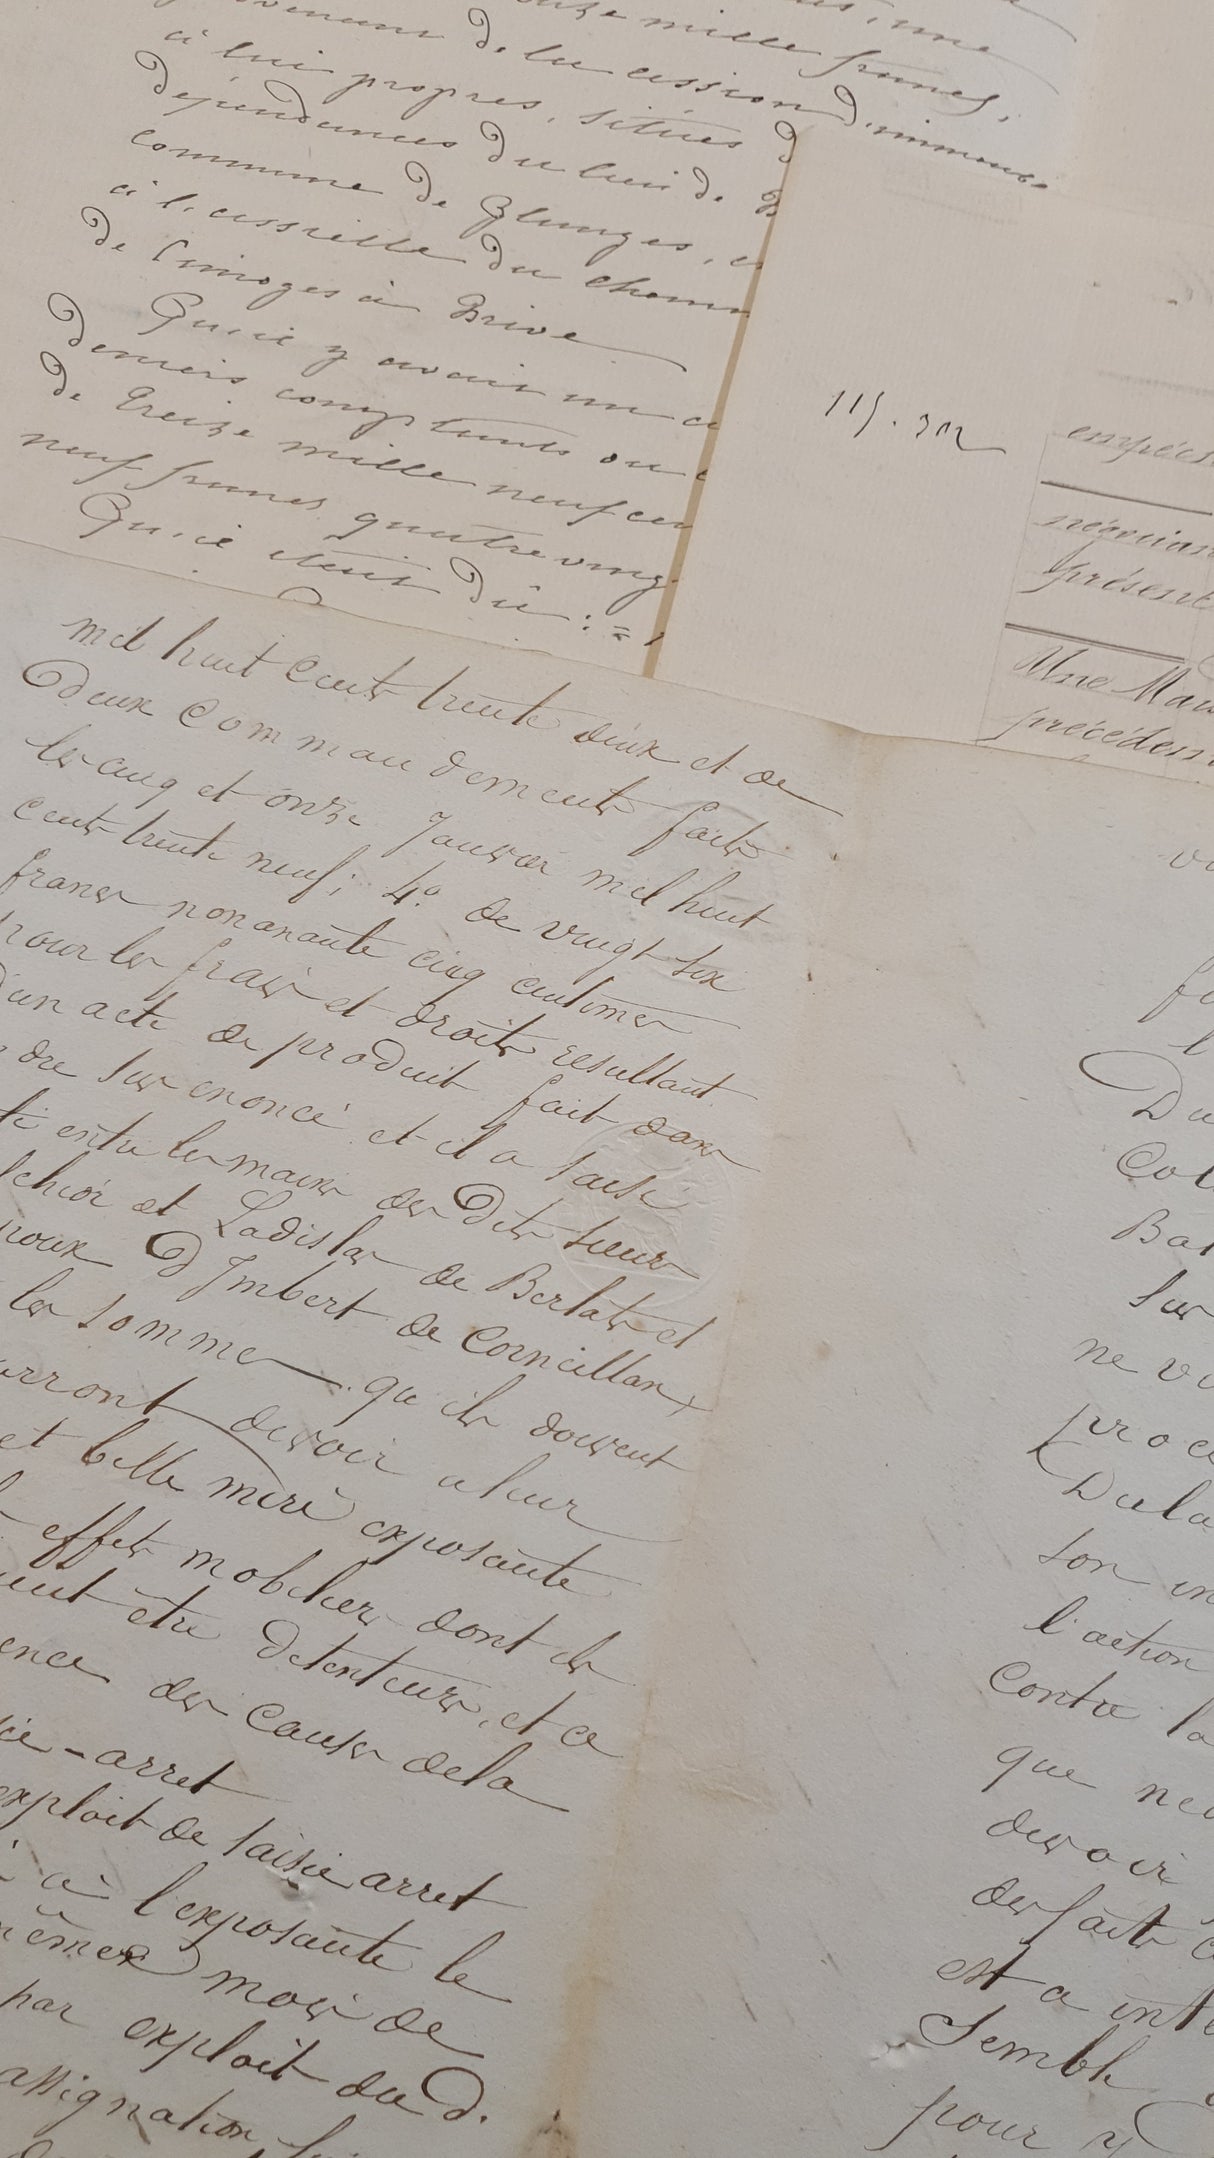 onze mille francs,
provenant de la cession d'immeubles
à lui propres, situés d
dépendances du lieu de B
commune de Glanges, e
à l'assiette du chemin
de Limoges à Brive.
Qu'il y avait un
deniers comptants ou
de treize mille neuf cen
neuf francs quatre ving
Qu'il était dû :
115.302
empêch
négocian
présent
Une Mai
précéden
mil huit cents trente deux et de
Deux Commandements faits
les cinq et onze Janvier mil huit
cents trente neuf; 4° de vingt six
francs nonanante cinq centimes
pour les frais et droits resultant
d'un acte de produit fait dans
dre sus enoncé et il a saisi
entre les mains des Dits sieurs
lchior et Ladislas de Berlats et
poux D'Imbert de Corneillan,
les sommes qu'ils doivent
rront devoir a leur
et belle mere exposante
effets mobiliers dont ils
ent être Detenteurs, et ce
ence des Causes de la
sie-arret
exploit de saisie arret
à l'exposante le
mêmes mois de
par exploit du d.
assignation
Du
Col
Bar
sur
ne v
proce
Dela
son in
l'action
Contre la
que ne
devoir
des faits
est a inte
Semble
pour y